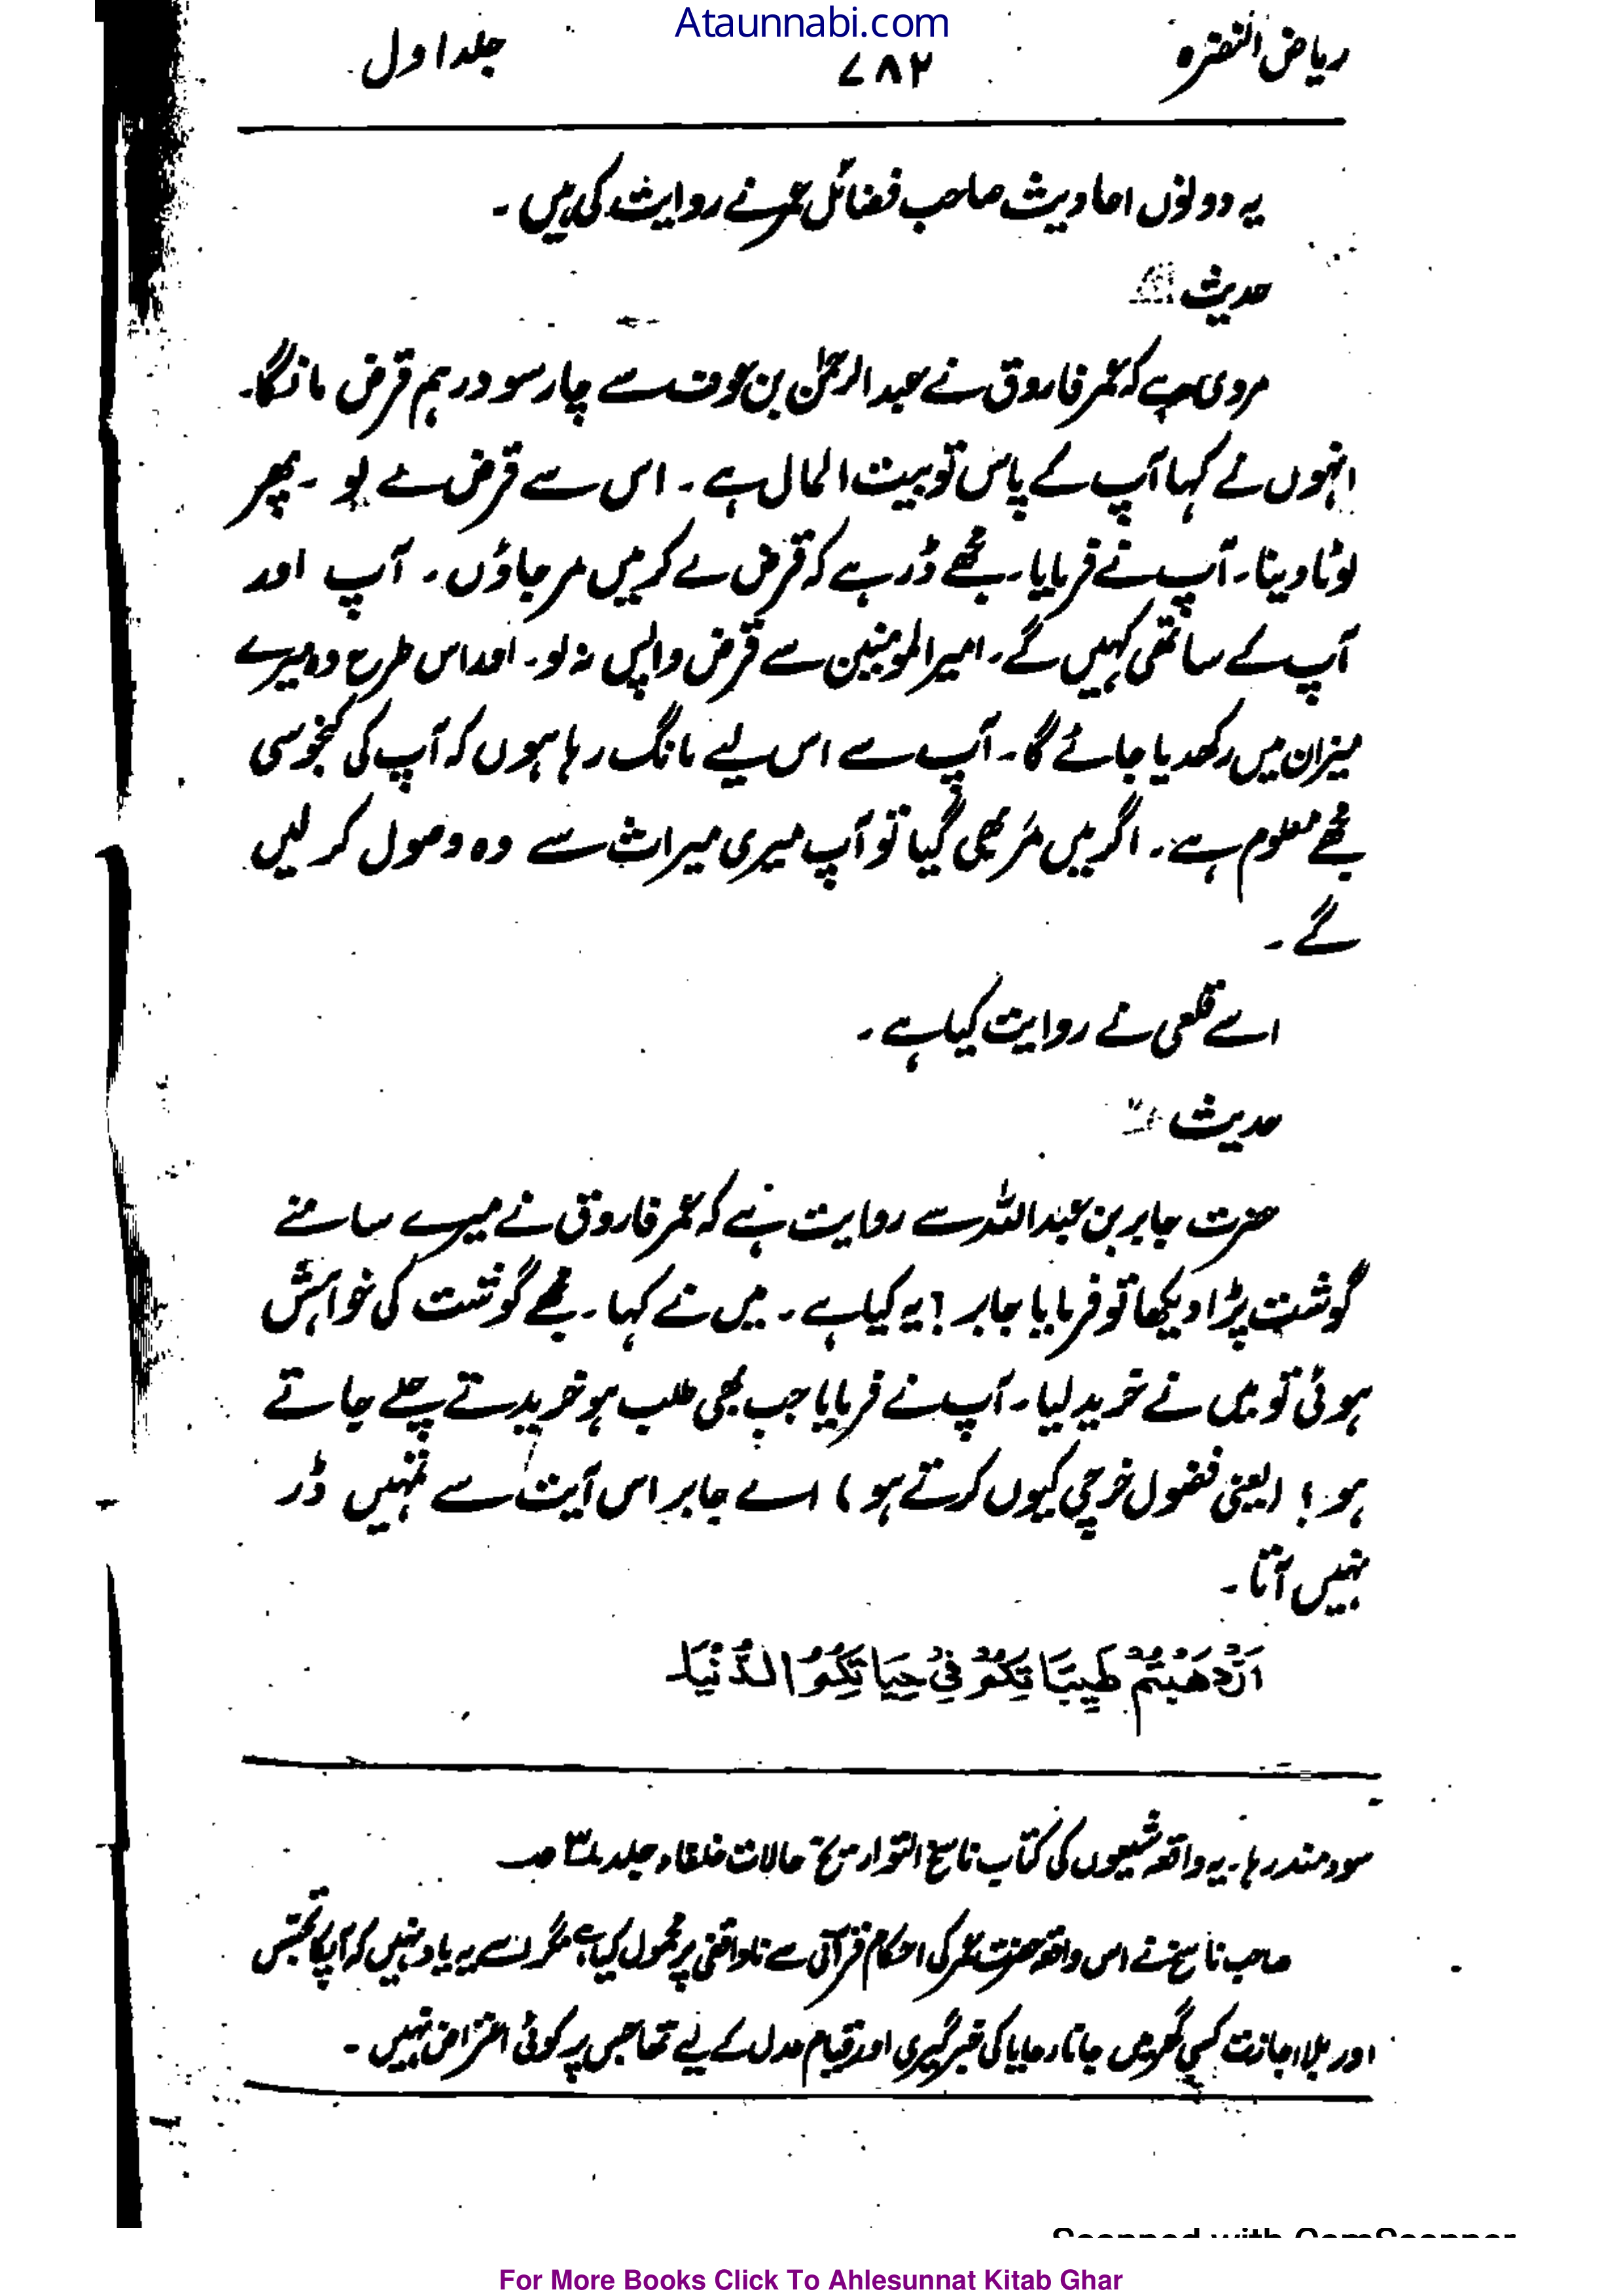 Ataunnabi.com
ریاض النضرہ ۷۸۲ جلد اول
یہ دونوں احادیث صاحب فضائل عمر نے روایت کی ہیں ۔
حدیث
مروی ہے کہ عمر فاروق نے عبدالرحمٰن بن عوف سے چار سو درہم قرض مانگا۔
انہوں نے کہا آپ کے پاس تو بیت المال ہے ۔ اس سے قرض لے لو ۔ پھر
لوٹا دینا۔ آپ نے فرمایا۔ مجھے ڈر ہے کہ قرض لے کر میں مر جاؤں۔ آپ اور
آپ کے ساتھی کہیں گے۔ امیر المومنین سے قرض واپس نہ لو۔ اور اس طرح وہ میرے
میزان میں رکھ دیا جائے گا۔ آپ سے اس لیے مانگ رہا ہوں کہ آپ کی کنجوسی
مجھے معلوم ہے۔ اگر میں مر بھی گیا تو آپ میری میراث سے وہ وصول کر لیں
گے ۔
اسے قلعی نے روایت کیا ہے ۔
حدیث
حضرت جابر بن عبداللہ سے روایت ہے کہ عمر فاروق نے میرے سامنے
گوشت پڑا دیکھا تو فرمایا جابر ! یہ کیا ہے ۔ میں نے کہا ۔ مجھے گوشت کی خواہش
ہوئی تو میں نے خرید لیا۔ آپ نے فرمایا جب بھی طلب ہو خریدتے چلے جاتے
ہو ؛ (یعنی فضول خرچی کیوں کرتے ہو) اے جابر اس آیت سے تمہیں ڈر
نہیں آتا ۔
اَذْهَبْتُمْ طَيِّبَاتِكُمْ فِيْ حَيَاتِكُمُ الدُّنْيَا۔
سود مند رہا۔ یہ واقعہ شیعوں کی کتاب ناسخ التواریخ حالات خلفاء جلد ۳ ص
صاحب ناسخ نے اس واقعہ حضرت عمر کی احکام قرآنی سے ناواقفی پر محمول کیا ہے مگر اسے یہ یاد نہیں کہ آپ کا تجسّس
اور بلا اجازت کسی گھر میں جانا رعایا کی خبر گیری اور قیام عدل کے لیے تھا جس پر کوئی اعتراض نہیں ۔
Scanned with CamScanner
For More Books Click To Ahlesunnat Kitab Ghar